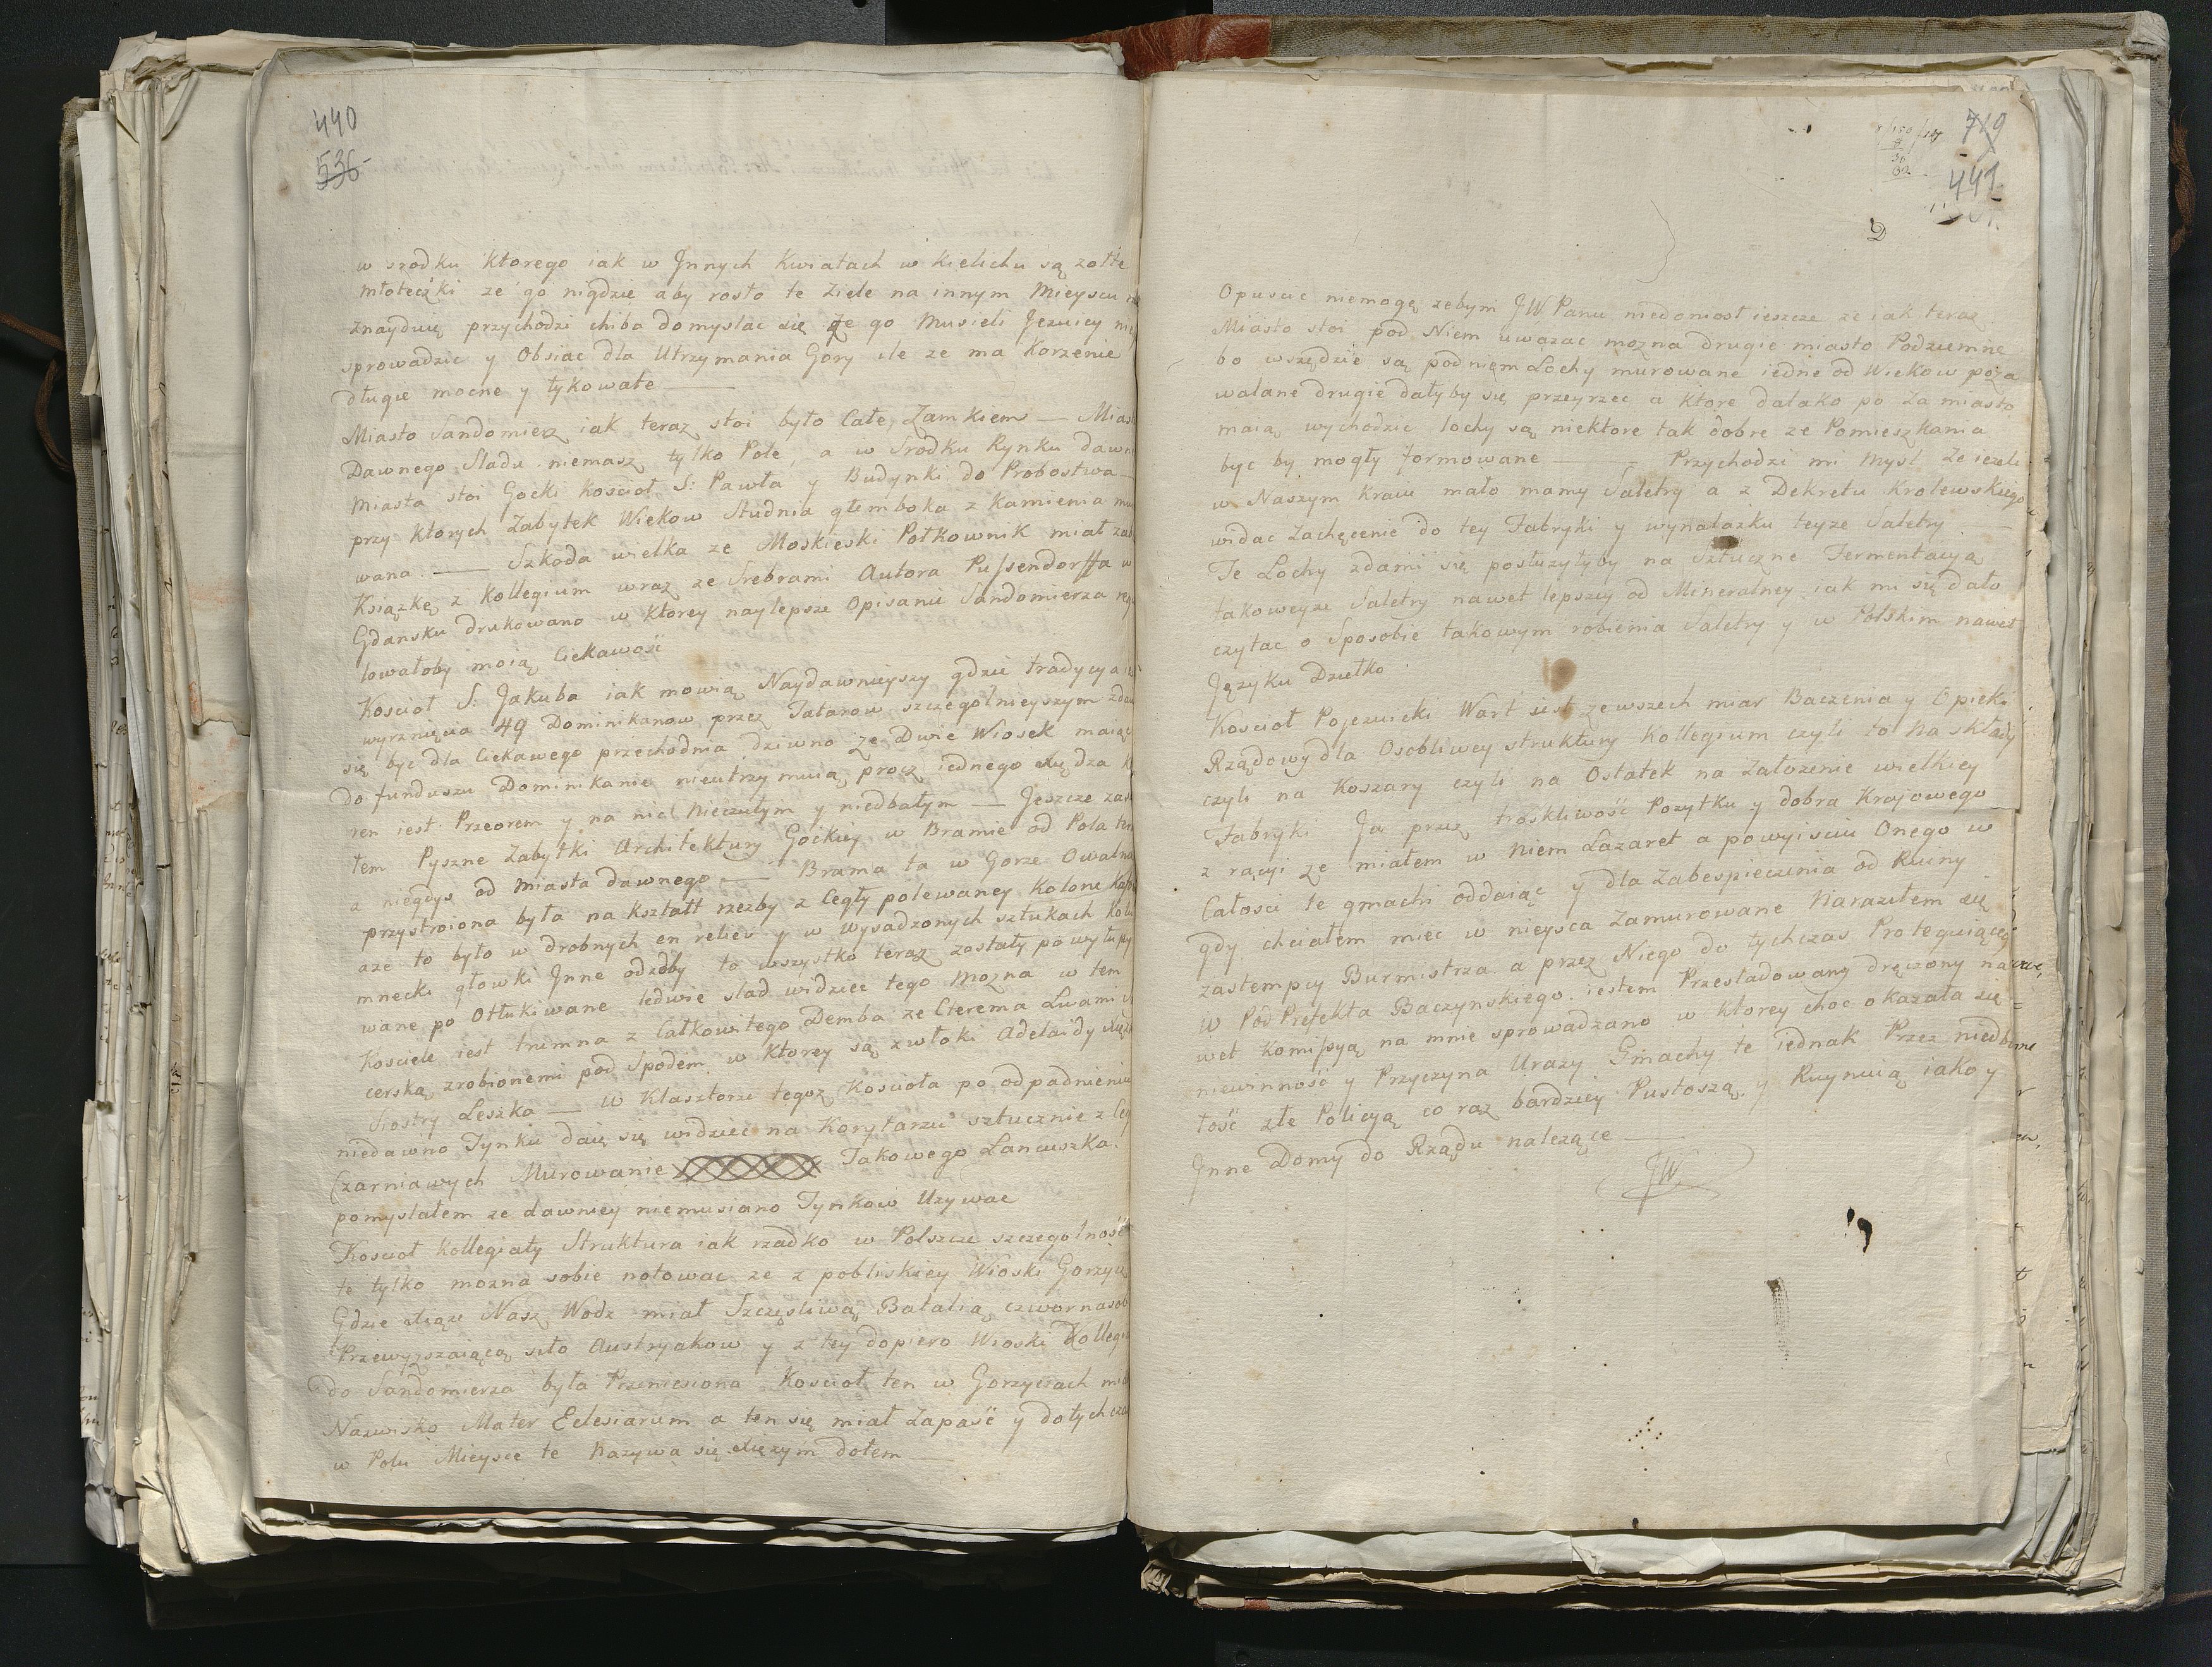 440
536
w srodku ktorego iak w Jnnych Kwiatach w kielichu są zołte
młoteczki ze go nigdzie aby rosło te Ziele na innym Mieyscu
znayduię przychodzi chiba domyslac się Ze go Musieli Jezuicy
sprowadzic y Obsiac dla Utrzymania Gory ile ze ma Korzenie
długie mocne y łykowate —
Miasto Sandomierz iak teraz stoi było Całe Zamkiem — Mias
Dawnego Sladu niemasz tylko Pole, a w Srodku Rynku dawn
Miasta stoi Gocki Koscioł S: Pawła y Budynki do Probostwa
przy ktorych Zabytek Wiekow Studnia głemboka z Kamienia mu
wana. — Szkoda wielka ze Moskieski Połkownik miał zab
Ksiązkę z Kollegium wraz ze Srebrami Autora Pufsendorffa w
Gdansku drukowano w ktorey naylepsze Opisanie Sandomierza
lowałoby moią Ciekawość
Koscioł S: Jakuba iak mowią Naydawnieyszy gdzie tradycya
wyrznięcia 49 Dominikanow przez Tatarow szczegolnieyszym zda
się byc dla Ciekawego przechodnia dziwno ze Dwie Wiosek maiąc
do funduszu Dominikanie nieutrzymuią procz iednego Xiędza k
ren iest Przeorem y na nic Nieczułym y niedbałym — Jeszcze zas
tem Pyszne Zabytki Architektury Gockiey w Bramie od Pola
a niegdys od Miasta dawnego — Brama ta w Gorze Owalna
przystroiona była na kształt rzezby z Cegły polewaney Kolone
aze to było w drobnych en reliev y w wysadzonych sztukach
mnecki głowki Jnne odzoby to wszystko teraz zostały powyłupy
wane po Otłukiwane ledwie slad widziec tego Mozna w tem
Kosciele iest trumna z Całkowitego Demba ze Cterema Lwami
cerską zrobionemi pod Spodem w ktorey są zwłoki Adelaidy
Siostry Leszka — W Klasztorze tegoz Koscioła po odpadnieniu
niedawno Tynku daię się widziec na Korytarzu sztucznie z Ceg
Czarniawych Murowanie Takowego Lancuszka.
pomyslałem ze dawniey niemusiano Tynkow Uzywac
Koscioł Kollegiaty Struktura iak rzadko w Polszcze szczegolność
te tylko mozna sobie notowac ze z pobliskiey Wioski Gorzyc
Gdzie Xiąze Nasz Wodz miał Szczęsliwą Batalią czwornasob
Przewyzszaiącą siło Austryakow y z tey dopiero Wioski Kollegia
do Sandomierza była Przeniesiona Koscioł ten w Gorzycach
Nazwisko Mater Eclesiarum a ten się miał Zapaść y dotychczas
w Polu Mieysce te Nazywa się Xięzym dołem —
719
441
D
Opuscic niemogę zebym JW Panu niedoniosł ieszcze ze iak teraz
Miasto stoi pod Niem uwazac mozna drugie miasto Podziemne
bo wszędzie są pod nięm Lochy murowane iedne od Wiekow poza
walane drugie dałyby się przeyrzec a ktore daleko po za miasto
maią wychodzic lochy są niektore tak dobre ze Pomieszkania
byc by mogły formowane — Przychodzi mi Mysl Ze iezeli
w Naszym Kraiu mało mamy Saletry a z Dekretu Krolewskiego
widac Zachęcenie do tey Fabryki y wynalazku teyze Saletry
Te Lochy zdami się posłuzyłyby na Sztuczne Fermentacyą
takoweyze Saletry nawet lepszey od Mineralney iak mi się dało
czytac o Sposobie takowym robienia Saletry y w Polskim nawet
Języku Dziełko
Koscioł Pojezuicki Wart iest ze wszech miar Baczenia y Opieki
Rządowy dla Osobliwey struktury Kollegium czyli to Na składy
czyli na Koszary czyli na Ostatek na Załozenie wielkiey
Fabryki Ja przez troskliwość Pozytku y dobra Krajowego
z racyi ze miałem w Niem Lazaret a powyisciu Onego w
Całosci te gmachi oddaiąc y dla Zabespieczenia od Ruiny
gdy chciałem miec w nieysca Zamurowane Naraziłem się
zastempcy Burmistrza a przez Niego do tychczas Proteguiącey
W Pod Prefekta Baczynskiego iestem Przesladowany dręczony na
wet Komifsyą na mnie sprowadzano w ktorey choc okazała się
niewinność y Przyczyna Urazy Gmachy te iednak Przez niedba
tość złe Policyą co raz bardziey Pustoszą y Ruynuią iako y
Jnne Domy do Rządu nalezące —
JW